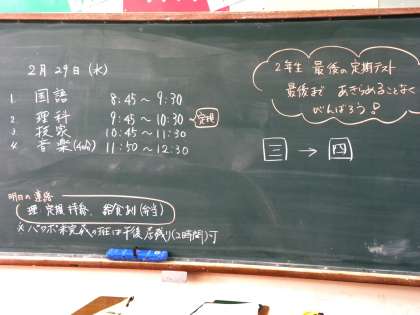 2月29日(水)
1. 国語 8:45～9:30
2. 理科 9:45～10:30 定規
3. 技家 10:45～11:30
4. 音楽 11:50～12:30
2年生 最後の定期テスト
最後まで あきらめることなく
がんばろう!
三 → 四
明日の連絡
理 定規持参、給食あり(弁当)
※パワポ未完成の班は午後居残り(2時間)可